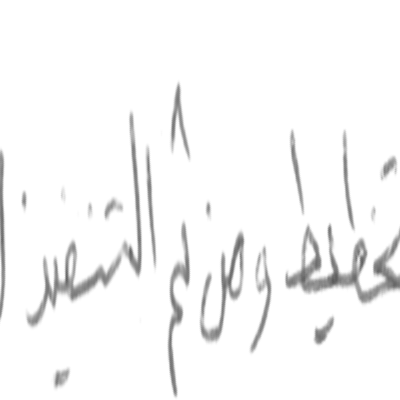 تخطيط ومن ثم التنفيذ